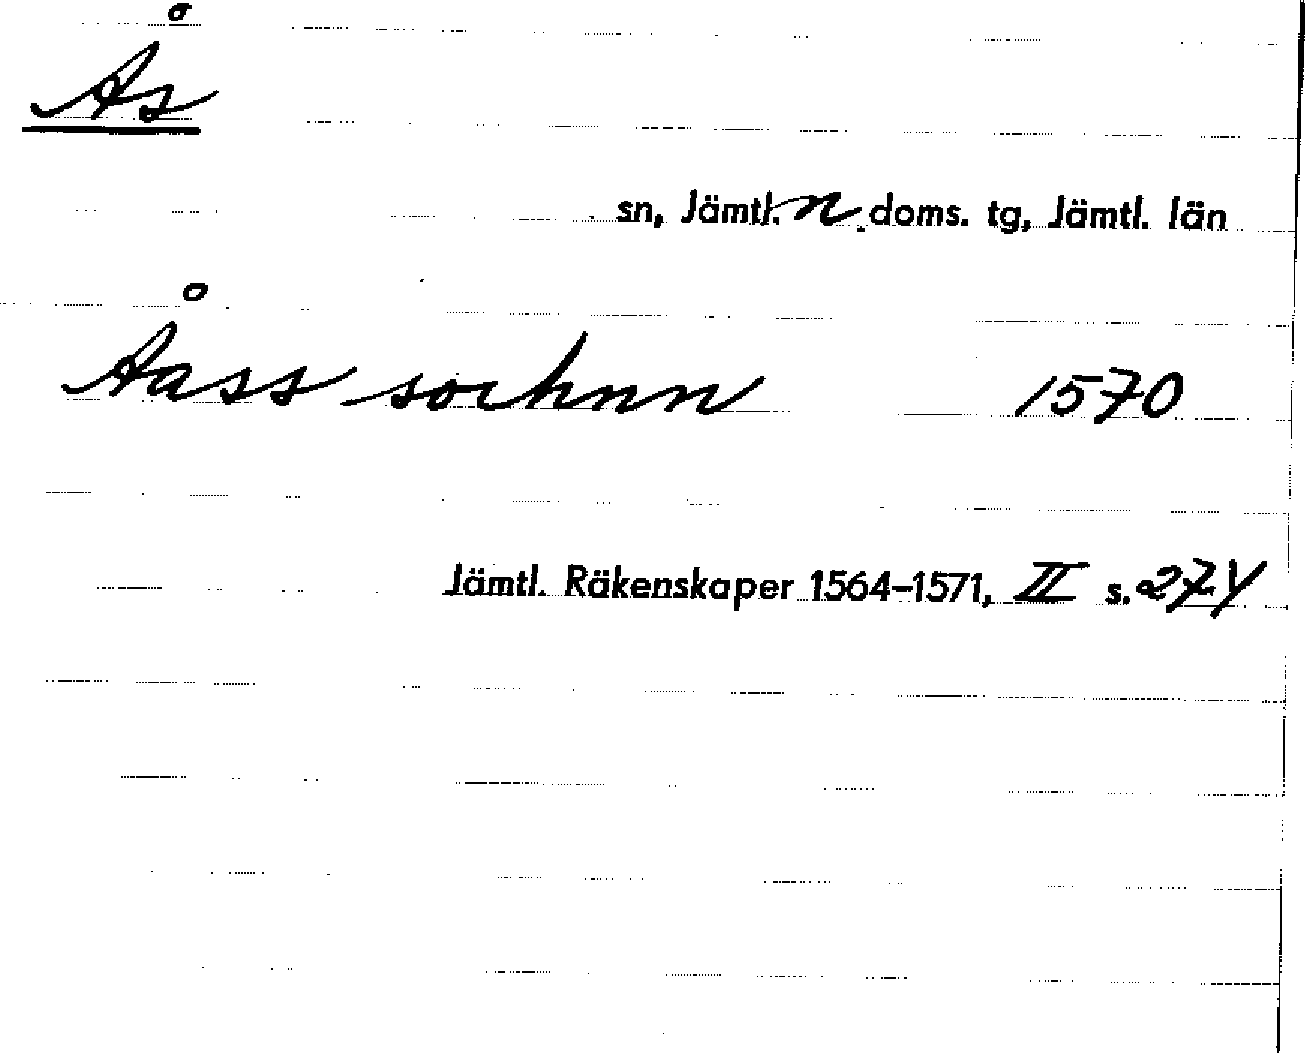 Ås
sn, Jämtl. n. doms. tg, Jämtl. län
Åass sochnn 1570
Jämtl. Räkenskaper 1564–1571, II s. 274